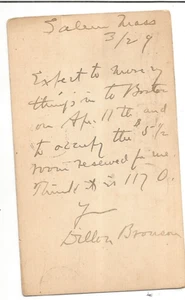 Salem Mass
3/29
Expect to move my
things in to Boston
on Apr. 11th and
to occupy the $5 1/2
room reserved for me
Think it is 117 O.
Dillon Bronson